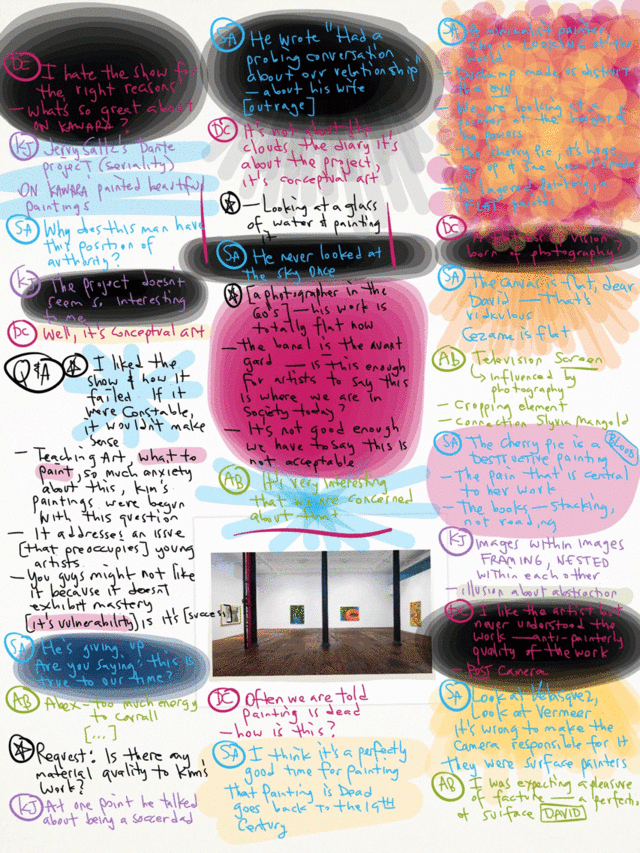 DC I hate the show for
the right reasons
— whats so great about
ON KAWARA?
KJ Jerry Saltz's Dante
project (seriality)
ON KAWARA painted beautiful
paintings
SA Why does this man have
this position of
authority?
KJ The project doesn't
seem so interesting
to me
DC Well, it's conceptual art
Q&A I liked the
show & how it
failed. If it
were Constable,
it wouldn't make
sense
— Teaching Art, what to
paint, so much anxiety
about this, Kim's
paintings were begun
with this question
— It addresses an issue
[that preoccupies] young
artists.
— You guys might not like
it because it doesn't
exhibit mastery
[it's vulnerability] is it's [success]
SA He's giving up
Are you saying this is
true to our time?
AB Abex — too much energy
to corrall
[...]
Request: Is there any
material quality to Kim's
work?
KJ At one point he talked
about being a soccer dad
SA He wrote "Had a
probing conversation
about our relationship"
— about his wife
[outrage]
DC It's not about the
clouds, the diary it's
about the project,
it's conceptual art
— Looking at a glass
of water & painting
it
SA He never looked at
the sky once
[a photographer in the
60's] — his work is
totally flat now
— the banal is the avant
gard — is this enough
for artists to say this
is where we are in
society today?
— It's not good enough
we have to say this is
not acceptable
AB It's very interesting
that we are concerned
about that
DC Often we are told
Painting is dead
— how is this?
SA I think it's a perfectly
good time for painting
That Painting is Dead
goes back to the 19th
Century
SA A minimalist painter
she is LOOKING at the
world
— Duchamp made us distrust
the eye
— We are looking at a
painter at the height of
her powers
— The cherry pie, it's huge
go up & see how it's made
— A layered painting, a
FLAT painter
DC of vision
born of photography?
SA The canvas is flat, dear
David — That's
ridiculous
Cezanne is flat
AB Television Screen
↳ influenced by
photography
— Cropping element
— connection Slyvia Mangold
SA The cherry pie is a
destructive painting Blood
— The pain that is central
to her work
— The books — stacking,
not reading
KJ Images within images
FRAMING, NESTED
within each other
— illusion about abstraction
I like the artist but
never understood the
work — anti-painterly
quality of the work
— Post Camera
SA Look at Velasquez,
Look at Vermeer
it's wrong to make the
camera responsible for it
They were surface painters
AB I was expecting a pleasure
of facture — a perfection
of surface DAVID